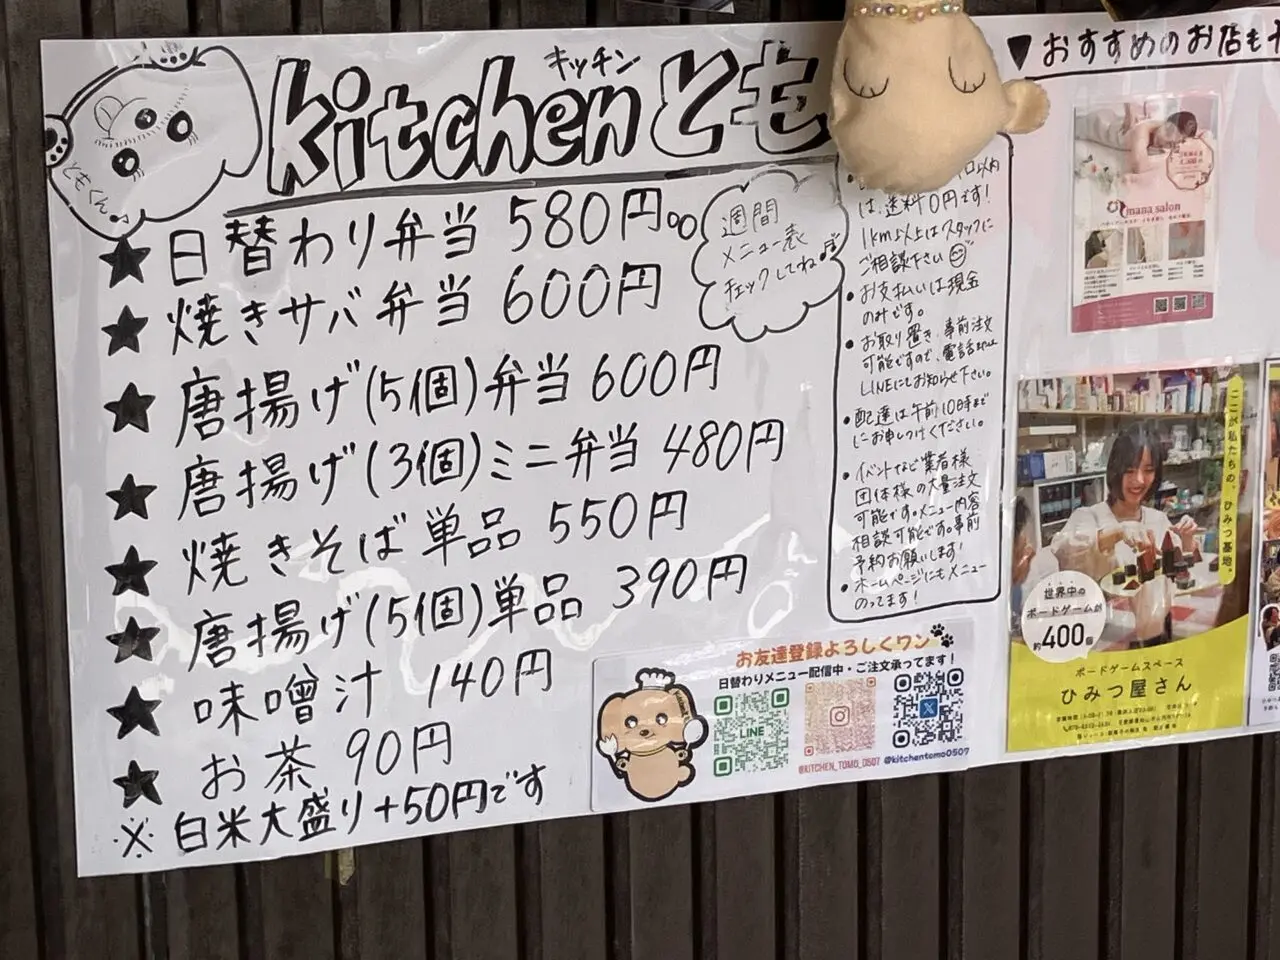 キッチン
kitchenとも
ともくん♪
★日替わり弁当 580円
★焼きサバ弁当 600円
★唐揚げ(5個)弁当 600円
★唐揚げ(3個)ミニ弁当 480円
★焼きそば単品 550円
★唐揚げ(5個)単品 390円
★味噌汁 140円
★お茶 90円
※白米大盛り+50円です
週間
メニュー表
チェックしてね♪
以内
は、送料0円です!
1km以上はスタッフに
ご相談下さい
・お支払いは現金
のみです。
・お取り置き、事前注文
可能ですので、電話または
LINEにてお知らせ下さい。
・配達は午前10時まで
にお申しつけください。
・イベントなど業者様
団体様の大量注文
可能です。メニュー内容
相談可能です。事前
予約お願いします!
・ホームページにもメニュー
のってます!
お友達登録よろしくワン
日替わりメニュー配信中・ご注文承ってます!
LINE
@KITCHEN_TOMO_0507
@kitchentomo0507
▼おすすめのお店も
mana salon
ここが私たちの、ひみつ基地。
世界中の
ボードゲームが
約400個
ボードゲームスペース
ひみつ屋さん